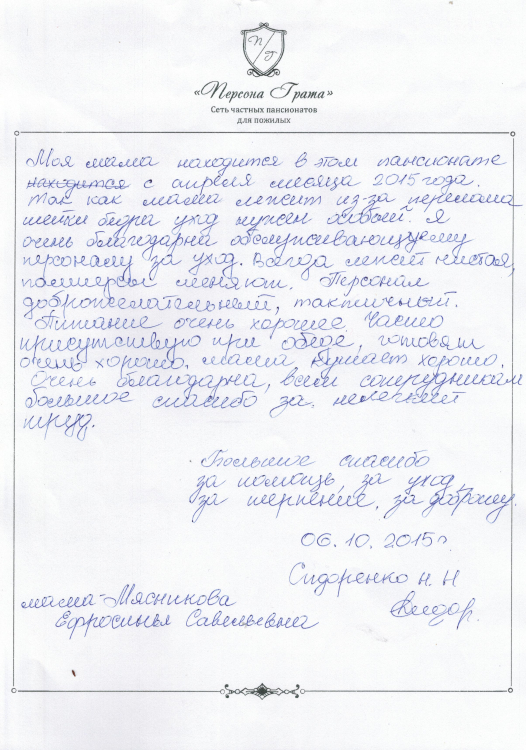 П Г
«Персона Грата»
Сеть частных пансионатов
для пожилых
Моя мама находится в этом пансионате
находится с апреля месяца 2015 года.
Так как мама лежит из-за перелома
шейки бедра уход нужен особый. Я
очень благодарна обслуживающему
персоналу за уход. Всегда лежит чистая,
памперсы меняют. Персонал
доброжелательный, тактичный.
Питание очень хорошее. Часто
присутствую при обеде, готовят
очень хорошо, мама кушает хорошо.
Очень благодарна, всем сотрудникам
большое спасибо за нелегкий
труд.
Большое спасибо
за помощь, за уход,
за терпение, за доброту.
06.10.2015г
Сидоренко Н.Н
мама-Мясникова
Ефросинья Савельевна
Сидор.